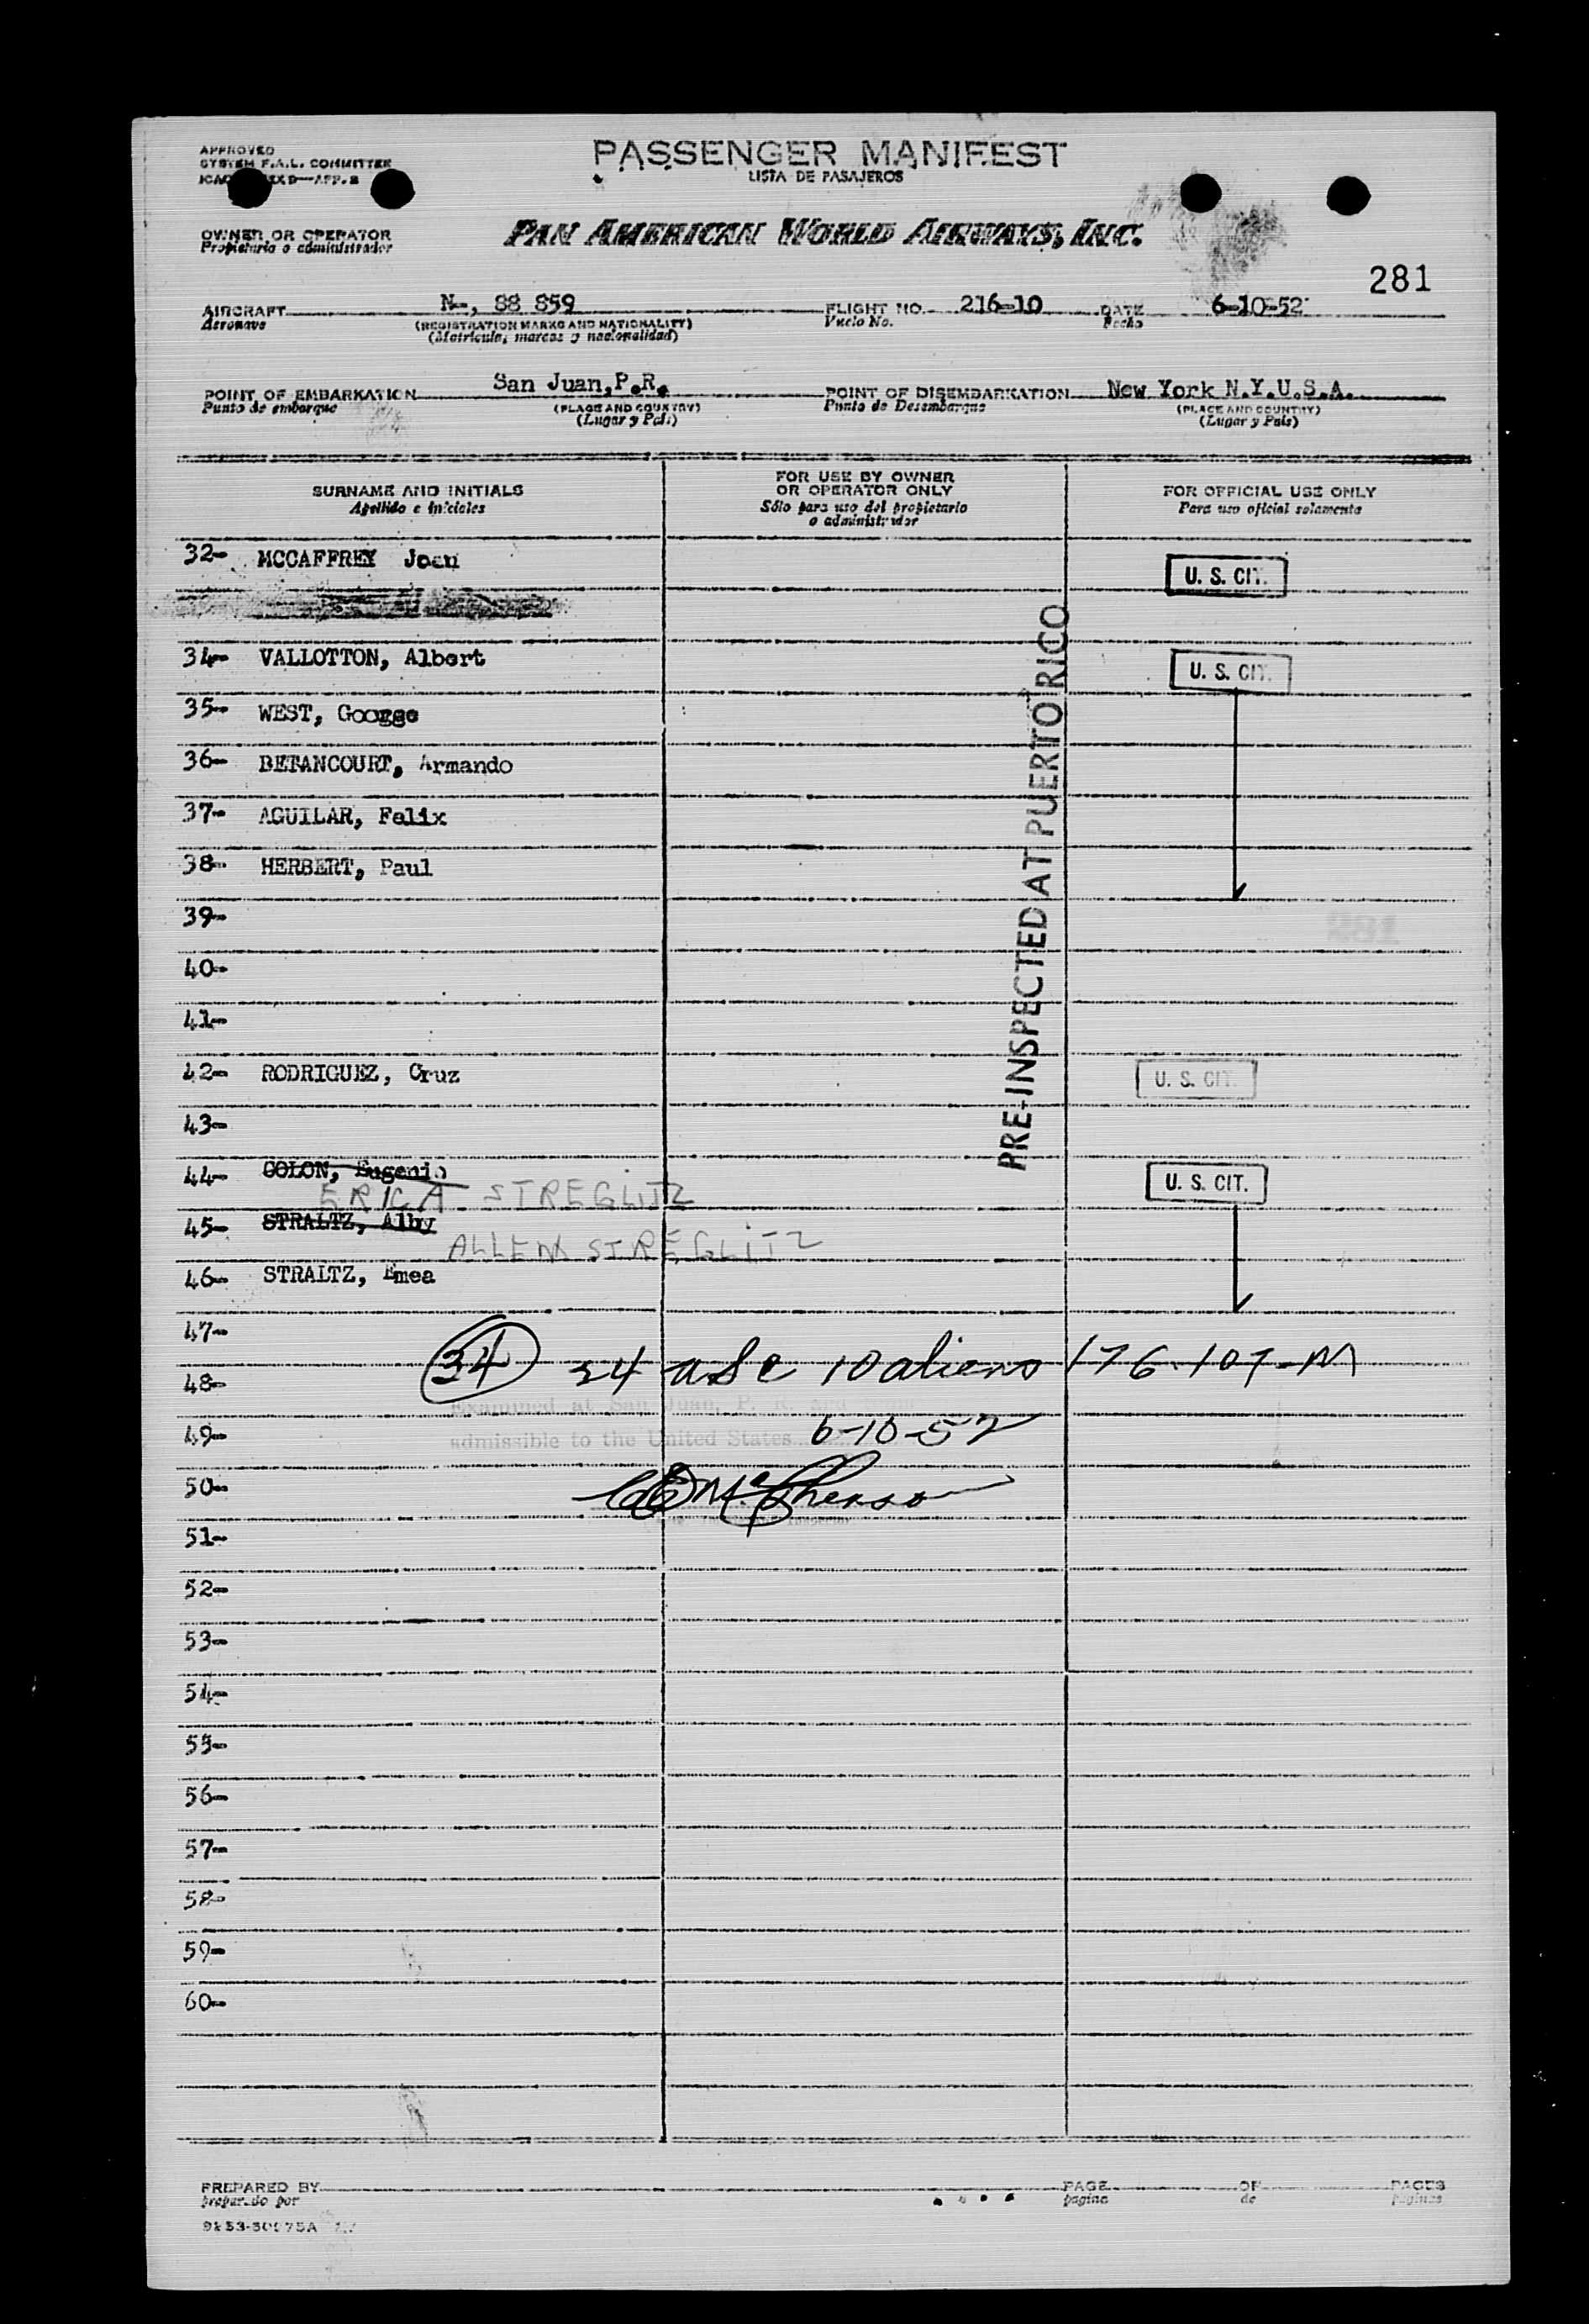 APPROVED
SYSTEM F.A.L. COMMITTEE
PASSENGER MANIFEST
LISTA DE PASAJEROS
OWNER OR OPERATOR
Propietario o administrador
PAN AMERICAN WORLD AIRWAYS, INC.
281
AIRCRAFT N-, 88 859 FLIGHT NO. 216-10 DATE 6-10-52
Aeronave (REGISTRATION MARKS AND NATIONALITY) Vuelo No. Fecha
(Matricula, marcas y nacionalidad)
POINT OF EMBARKATION San Juan,P.R. POINT OF DISEMBARKATION New York N.Y.U.S.A.
Punto de embarque (PLACE AND COUNTRY) Punto de Desembarque (PLACE AND COUNTRY)
(Lugar y País) (Lugar y País)
SURNAME AND INITIALS
Apellido e iniciales
FOR USE BY OWNER
OR OPERATOR ONLY
Sólo para uso del propietario
o administrador
FOR OFFICIAL USE ONLY
Para uso oficial solamente
32- MCCAFFREY Joan U. S. CIT.
34- VALLOTTON, Albert U. S. CIT.
35- WEST, George
36- BETANCOURT, Armando
37- AGUILAR, Felix
38- HERBERT, Paul
39-
40-
41-
42- RODRIGUEZ, Cruz U. S. CIT.
43-
44- COLON, Eugenio U. S. CIT.
ERICA STREGLITZ
45- STRALTZ, Alby
ALLEN STREGLITZ
46- STRALTZ, Emea
PRE-INSPECTED AT PUERTO RICO
47-
34 34 USC 10 aliens 176-107-M
48-
Examined at San Juan, P. R. and
49- 6-10-52
admissible to the United States
50-
51-
52-
53-
54-
55-
56-
57-
58-
59-
60-
PREPARED BY PAGE OF PAGES
preparado por pagina de paginas